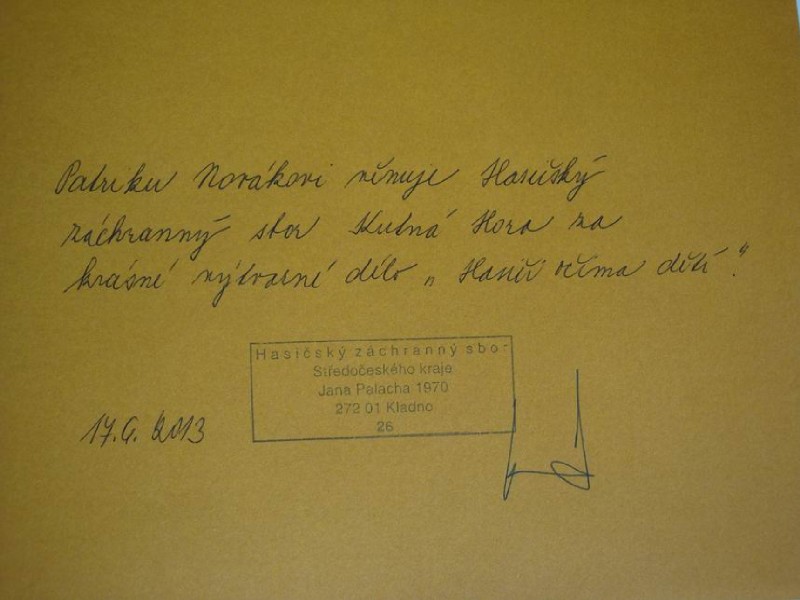 Patriku Novákovi věnuje Hasičský
záchranný sbor Kutná Hora za
krásné výtvarné dílo „Hasiči očima dětí."
Hasičský záchranný sbor
Středočeského kraje
Jana Palacha 1970
272 01 Kladno
26
17.6.2013